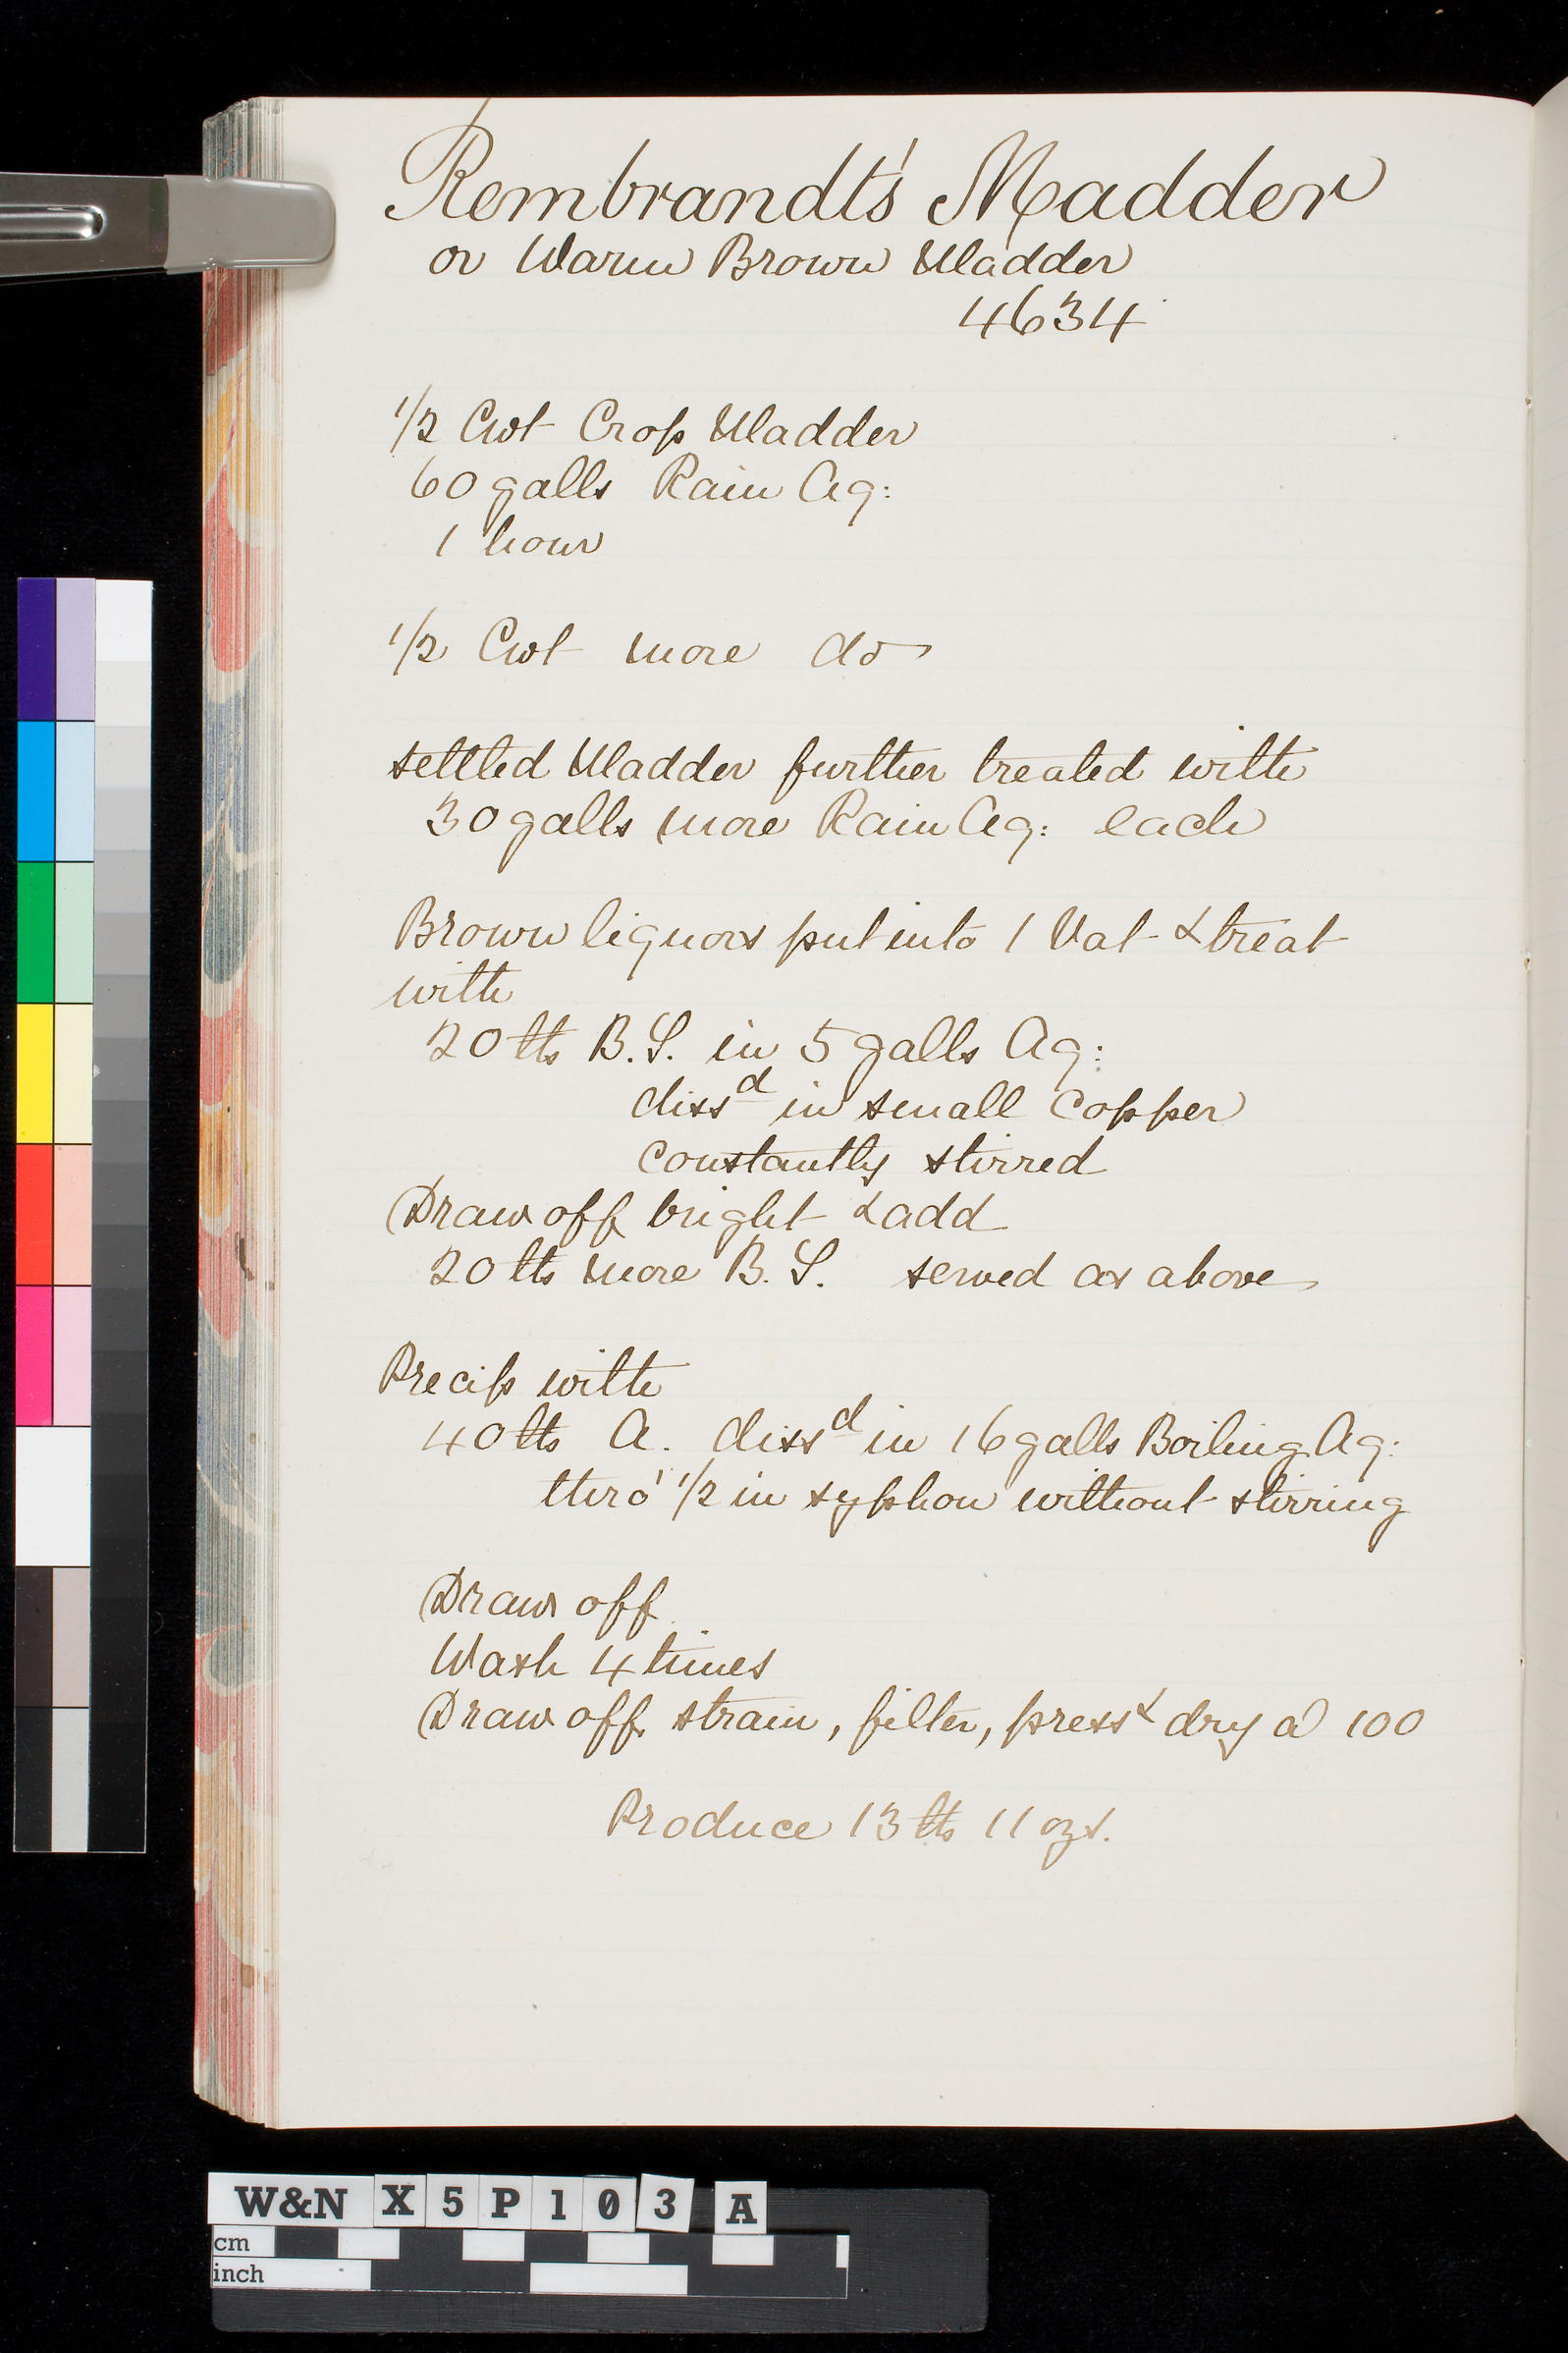 Rembrandt's Madder
or Warm Brown Madder
4634
1/2 Cwt Crop Madder
60 galls Rain Aq:
1 hour
1/2 Cwt more do
settled Madder further treated with
30 galls more Rain Aq: each
Brown liquors put into 1 Vat & treat
with
20 lbs B.S. in 5 galls Aq:
dissd in small Copper
constantly stirred
Draw off bright & add
20 lbs more B.S. served as above
Precip with
40 lbs A. dissd in 16 galls Boiling Aq:
thro' 1/2 in syphon without stirring
Draw off
Wash 4 times
Draw off, strain, filter, press & dry a 100
Produce 13 lbs 11 ozs.
W&N X5P103 A
cm
inch